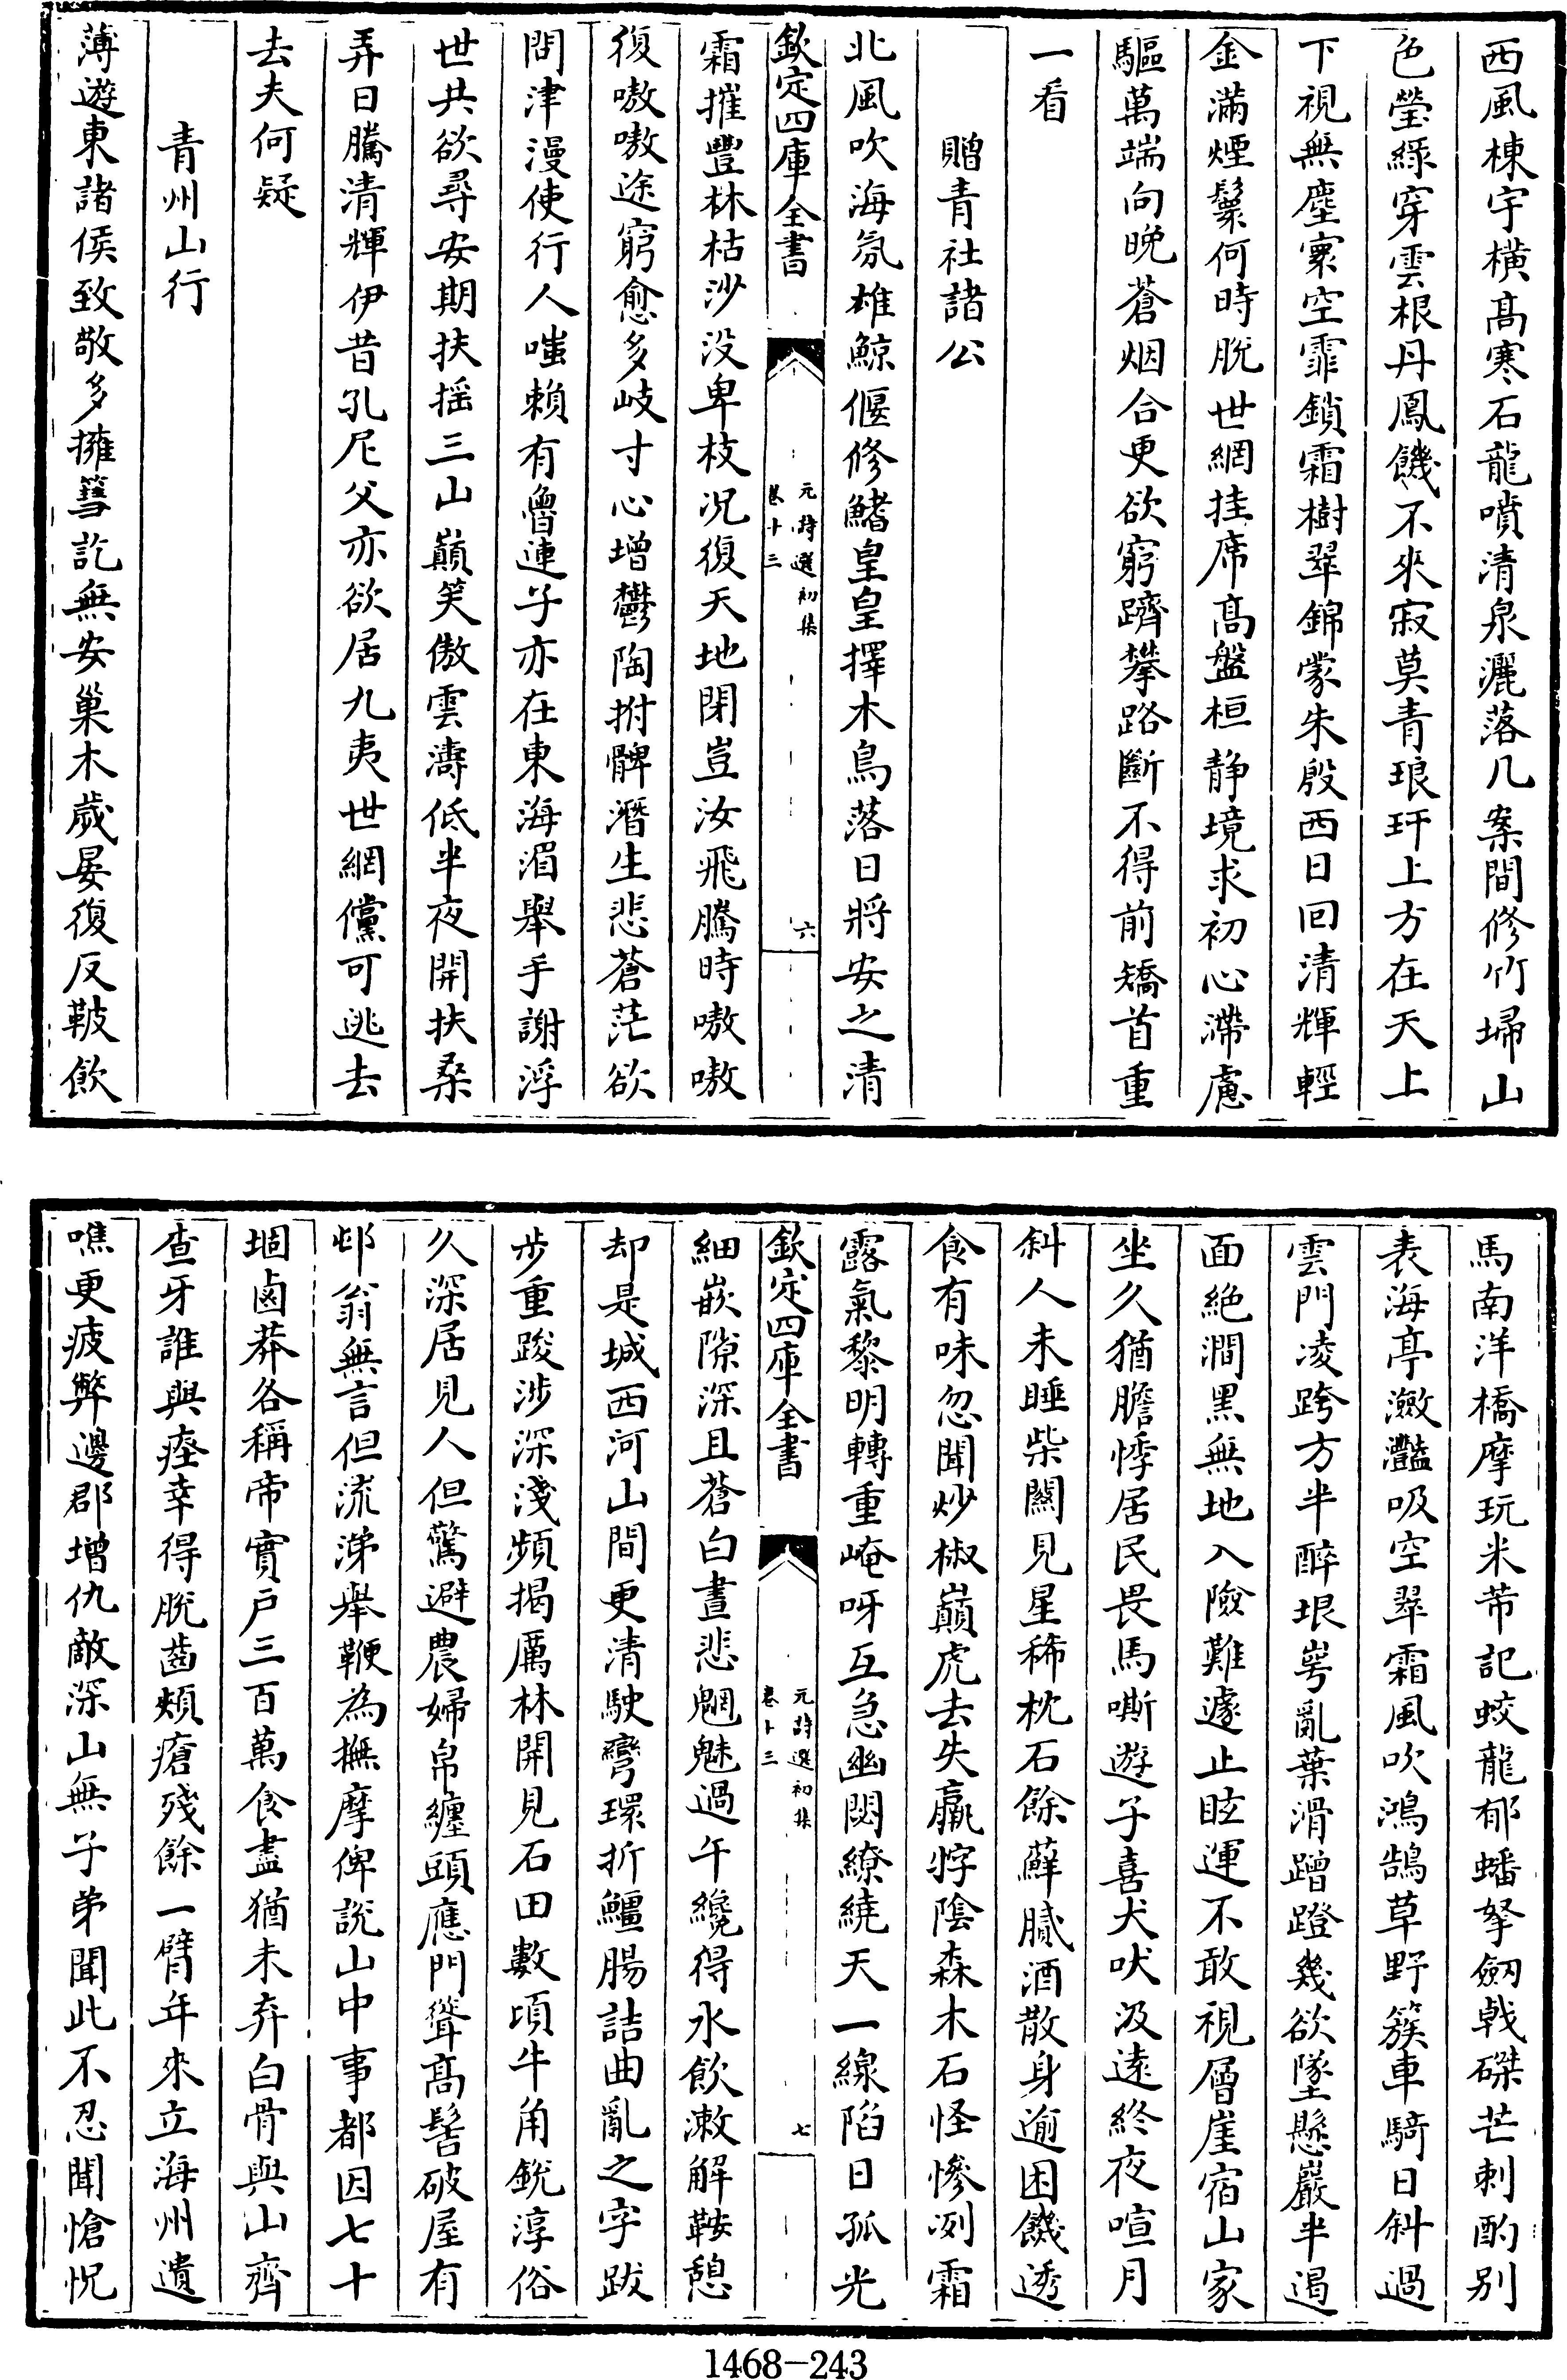 西風棟宇橫髙寒石龍噴清泉灑落几案間修竹埽山
色瑩綠穿雲根丹鳳饑不來寂莫青琅玕上方在天上
下視無塵寰空霏鎖霜樹翠錦蒙朱殷西日回清輝輕
金滿煙鬟何時脫世網挂席髙盤桓静境求初心滯慮
驅萬端向晚蒼烟合更欲窮躋攀路斷不得前矯首重
一看
贈青社諸公
北風吹海氛雄鯨偃修鰭皇皇擇木鳥落日將安之清
欽定四庫全書
元詩選初集
卷十三
六
霜摧豐林枯沙没卑枝况復天地閉豈汝飛騰時嗷嗷
復嗷嗷途窮愈多岐寸心增鬱陶拊髀潛生悲蒼茫欲
問津漫使行人嗤賴有魯連子亦在東海湄舉手謝浮
世共欲尋安期扶揺三山巔笑傲雲濤低半夜開扶桑
弄日騰清輝伊昔孔尼父亦欲居九夷世網儻可逃去
去夫何疑
青州山行
薄遊東諸侯致敬多擁篲訖無安巢木歲晏復反鞁飲
馬南洋橋摩玩米芾記蛟龍郁蟠拏劒戟磔芒刺酌别
表海亭瀲灩吸空翠霜風吹鴻鵠草野簇車騎日斜過
雲門凌跨方半醉垠崿亂葉滑蹭蹬幾欲墜懸巖半遏
面絶澗黑無地入險難遽止眩運不敢視層崖宿山家
坐久猶膽悸居民畏馬嘶遊子喜犬吠汲遠終夜喧月
斜人未睡柴闗見星稀枕石餘蘚膩酒散身逾困饑透
食有味忽聞炒椒巔虎去失羸牸陰森木石怪慘冽霜
露氣黎明轉重崦呀互急幽閟繚繞天一線陷日孤光
欽定四庫全書
元詩選初集
卷十三
七
細嵌隙深且蒼白晝悲魍魅過午纔得水飲漱解鞍憩
却是城西河山間更清駛彎環折鱷腸詰曲亂之字跋
步重踆涉深淺頻揭厲林開見石田數頃牛角銳淳俗
久深居見人但驚避農婦帛纏頭應門聳髙髻破屋有
邨翁無言但流涕舉鞭為撫摩俾說山中事都因七十
堌鹵莽各稱帝實戸三百萬食盡猶未弃白骨與山齊
查牙誰與瘞幸得脫齒頰瘡殘餘一臂年來立海州遺
噍更疲弊邊郡增仇敵深山無子弟聞此不忍聞愴怳
1468-243